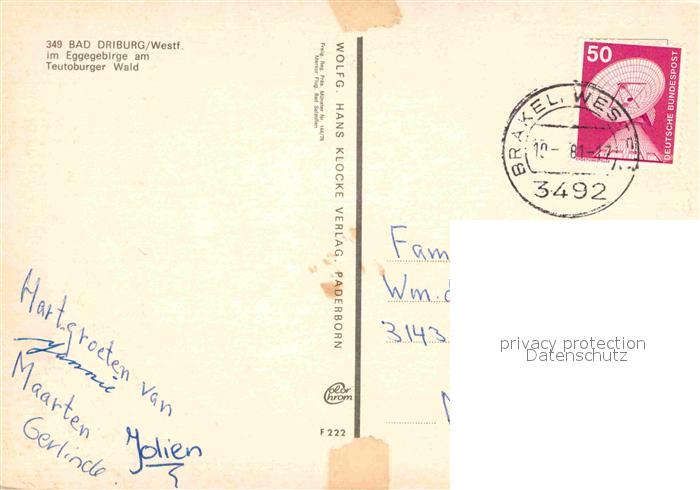 349 BAD DRIBURG/Westf.
im Eggegebirge am
Teutoburger Wald
Hartgroeten van
Yannic
Maarten
Gerlinde.
Jolien
WOLFG. HANS KLOCKE VERLAG, PADERBORN
Freig. Reg. Präs. Münster Nr.
Color
Chrom
F 222
50
DEUTSCHE BUNDESPOST
BRAKEL, WEST
3492
Fam
Wm. d
3143
privacy protection
Datenschutz